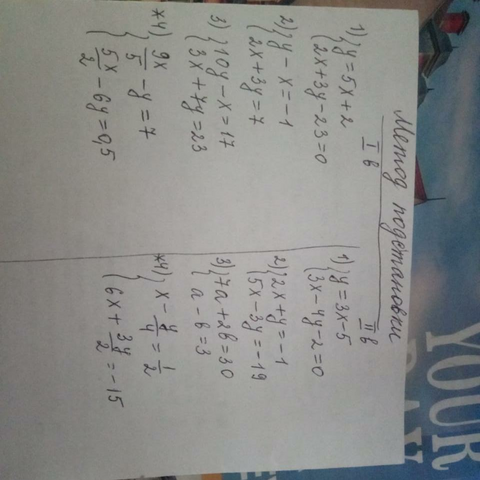 Метод подстановки
I в
1) { y = 5x + 2
2x + 3y - 23 = 0
2) { y - x = -1
2x + 3y = 7
3) { 10y - x = 17
3x + 7y = 23
*4) { 9x/5 - y = 7
5x/2 - 6y = 0,5
II в
1) { y = 3x - 5
3x - 4y - 2 = 0
2) { 2x + y = -1
5x - 3y = -19
3) { 7a + 2b = 30
a - b = 3
*4) { x - y/4 = 1/2
6x + 3y/2 = -15
YOUR